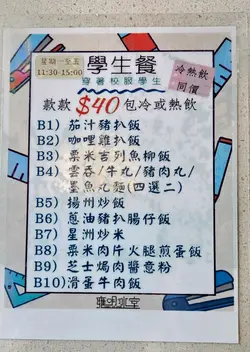 星期一至五
11:30-15:00
學生餐
穿著校服學生
冷熱飲
同價
款款$40包冷或熱飲
B1) 茄汁豬扒飯
B2) 咖哩雞扒飯
B3) 粟米吉列魚柳飯
B4) 雲吞/牛丸/豬肉丸/
墨魚丸麵(四選二)
B5) 揚州炒飯
B6) 蔥油豬扒腸仔飯
B7) 星洲炒米
B8) 粟米肉片火腿煎蛋飯
B9) 芝士焗肉醬意粉
B10)滑蛋牛肉飯
聰明冰室